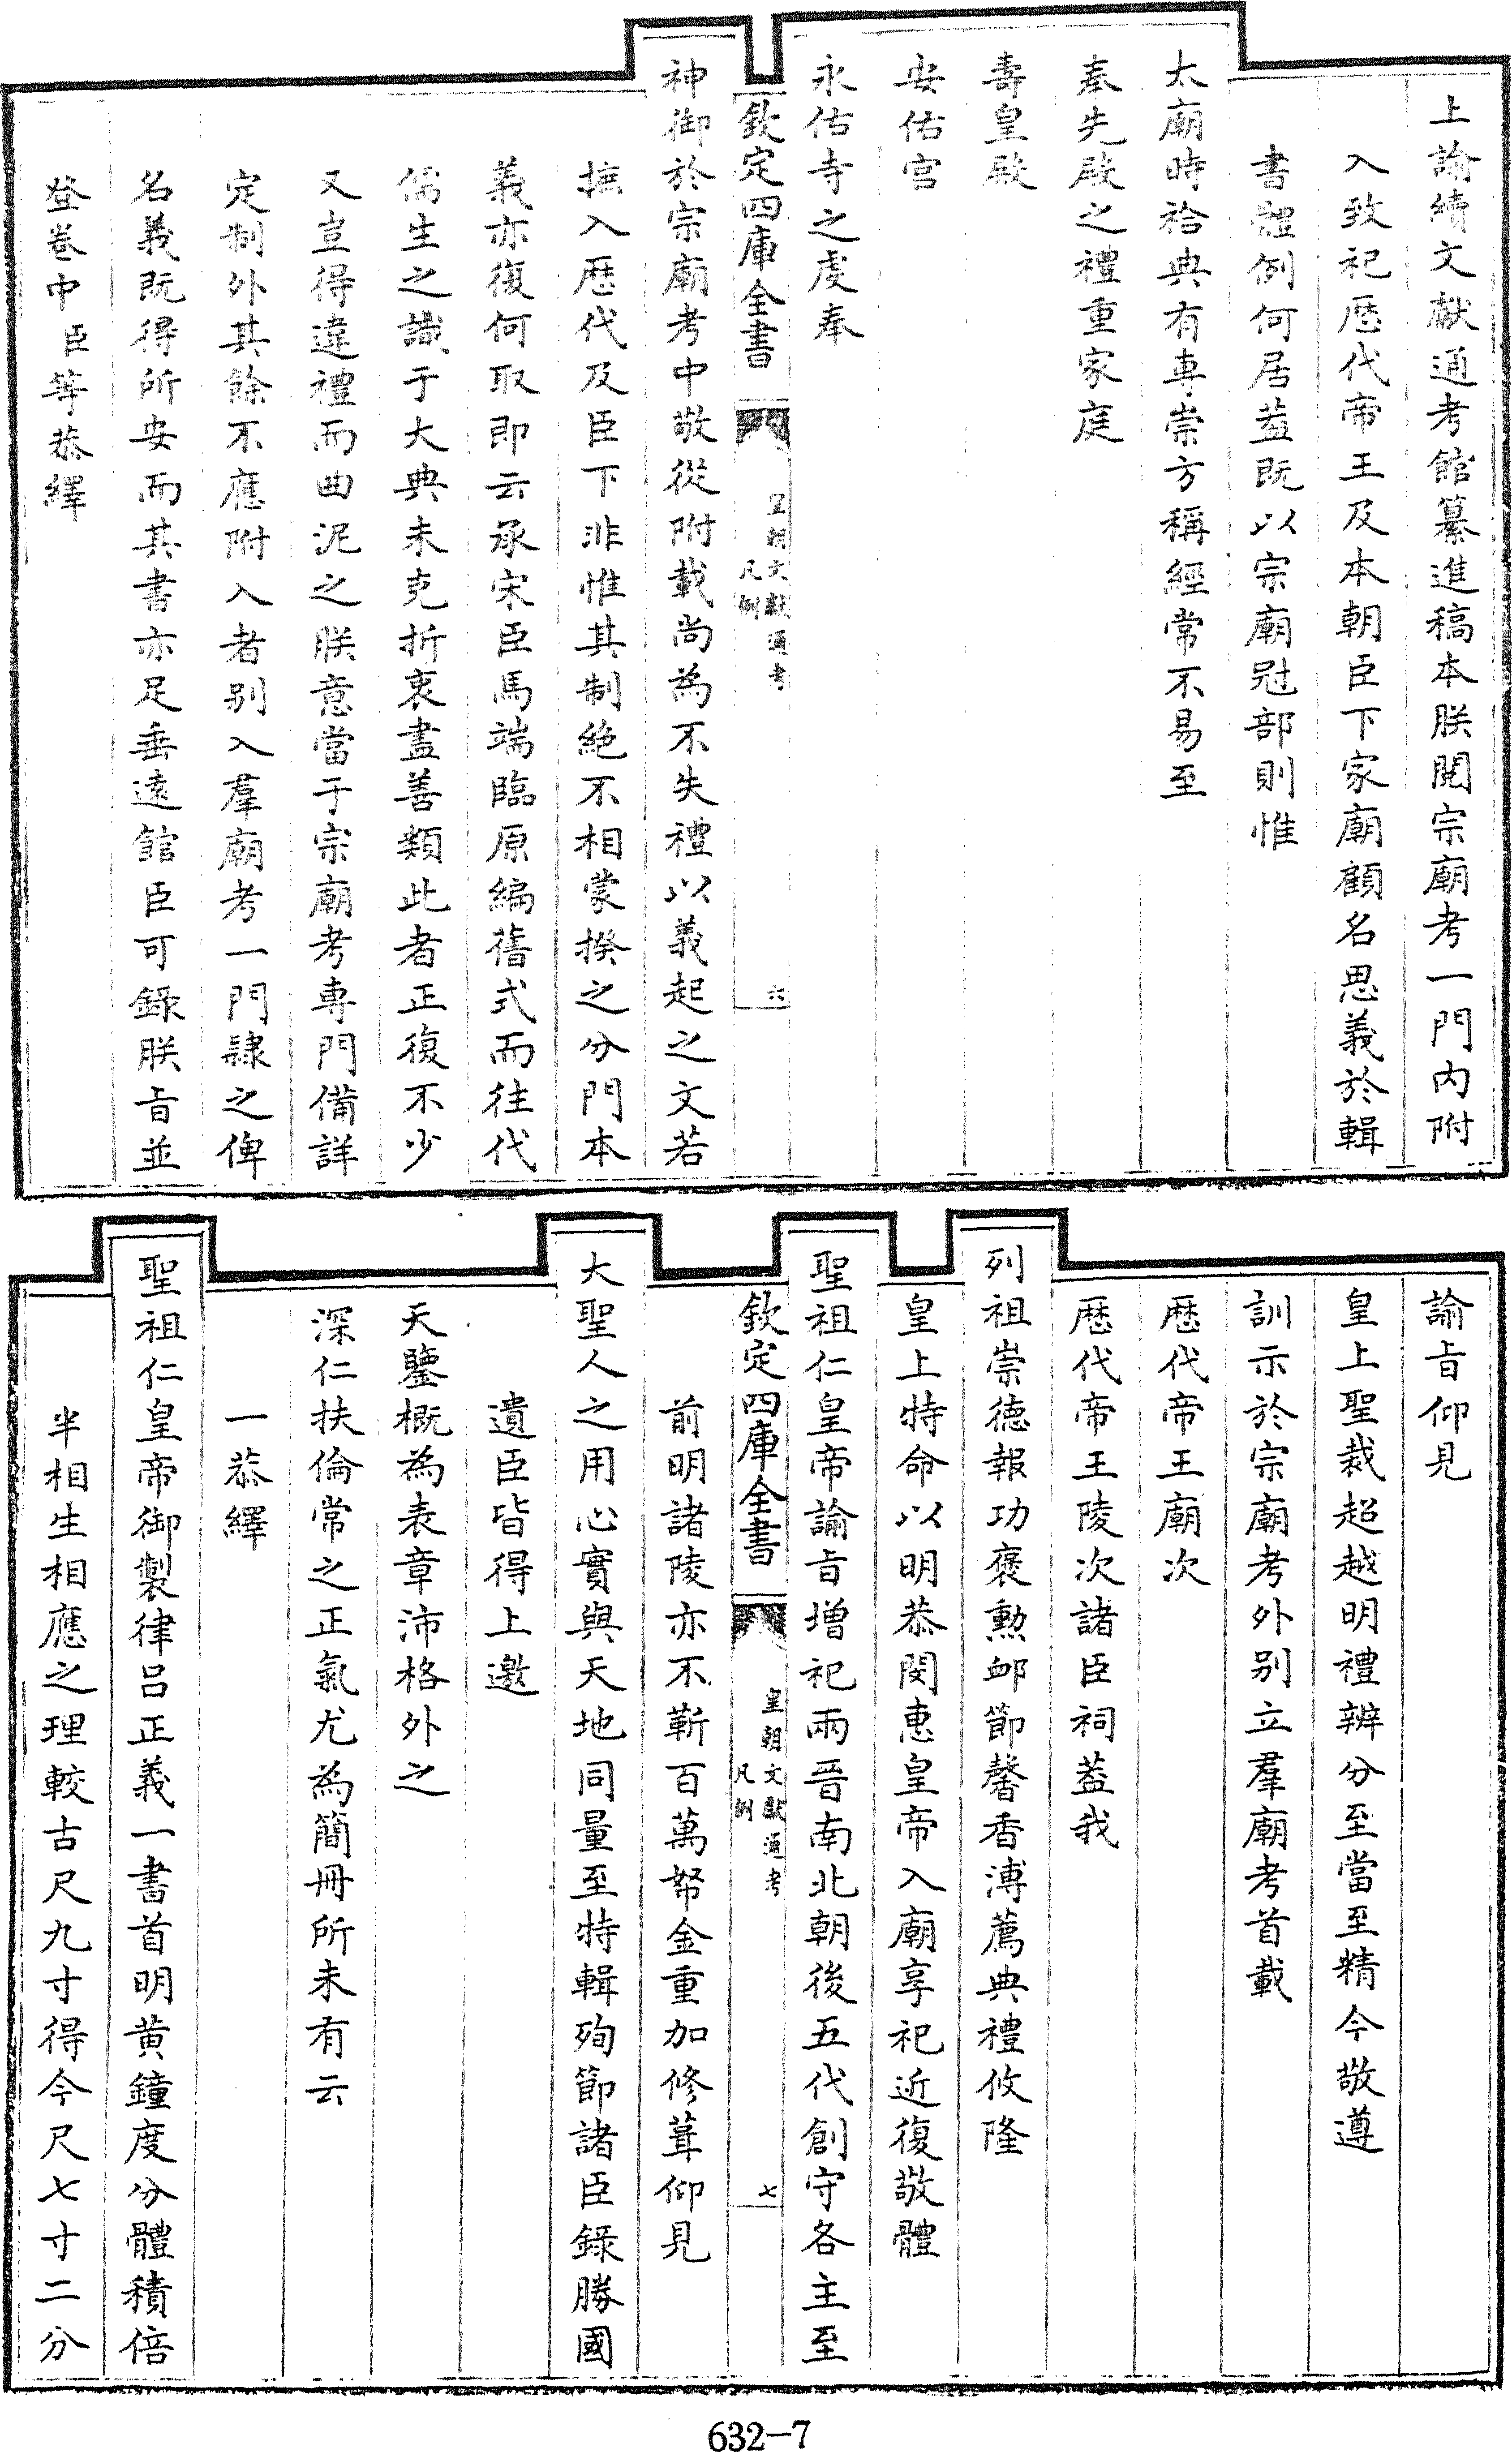 上諭續文獻通考館纂進稿本朕閱宗廟考一門内附
入致祀厯代帝王及本朝臣下家廟顧名思義於輯
書體例何居葢既以宗廟冠部則惟
太廟時祫典有專崇方稱經常不易至
奉先殿之禮重家庭
壽皇殿
安佑宫
永佑寺之虔奉
欽定四庫全書
皇朝文獻通考
凡例
六
神御於宗廟考中敬從附載尚為不失禮以義起之文若
摭入厯代及臣下非惟其制絶不相蒙揆之分門本
義亦復何取即云承宋臣馬端臨原編舊式而往代
儒生之識于大典未克折衷盡善類此者正復不少
又豈得違禮而曲泥之朕意當于宗廟考專門備詳
定制外其餘不應附入者别入羣廟考一門隸之俾
名義既得所安而其書亦足垂遠館臣可錄朕㫖並
登卷中臣等恭繹
諭㫖仰見
皇上聖裁超越明禮辨分至當至精今敬遵
訓示於宗廟考外别立羣廟考首載
厯代帝王廟次
厯代帝王陵次諸臣祠葢我
列祖崇德報功褒勲䘏節馨香溥薦典禮攸隆
皇上特命以明恭閔惠皇帝入廟享祀近復敬體
聖祖仁皇帝諭㫖增祀兩晉南北朝後五代創守各主至
欽定四庫全書
皇朝文獻通考
凡例
七
前明諸陵亦不靳百萬帑金重加修葺仰見
大聖人之用心實與天地同量至特輯殉節諸臣錄勝國
遺臣皆得上邀
天鑒概為表章沛格外之
深仁扶倫常之正氣尤為簡冊所未有云
一恭繹
聖祖仁皇帝御製律吕正義一書首明黄鐘度分體積倍
半相生相應之理較古尺九寸得今尺七寸二分
632-7